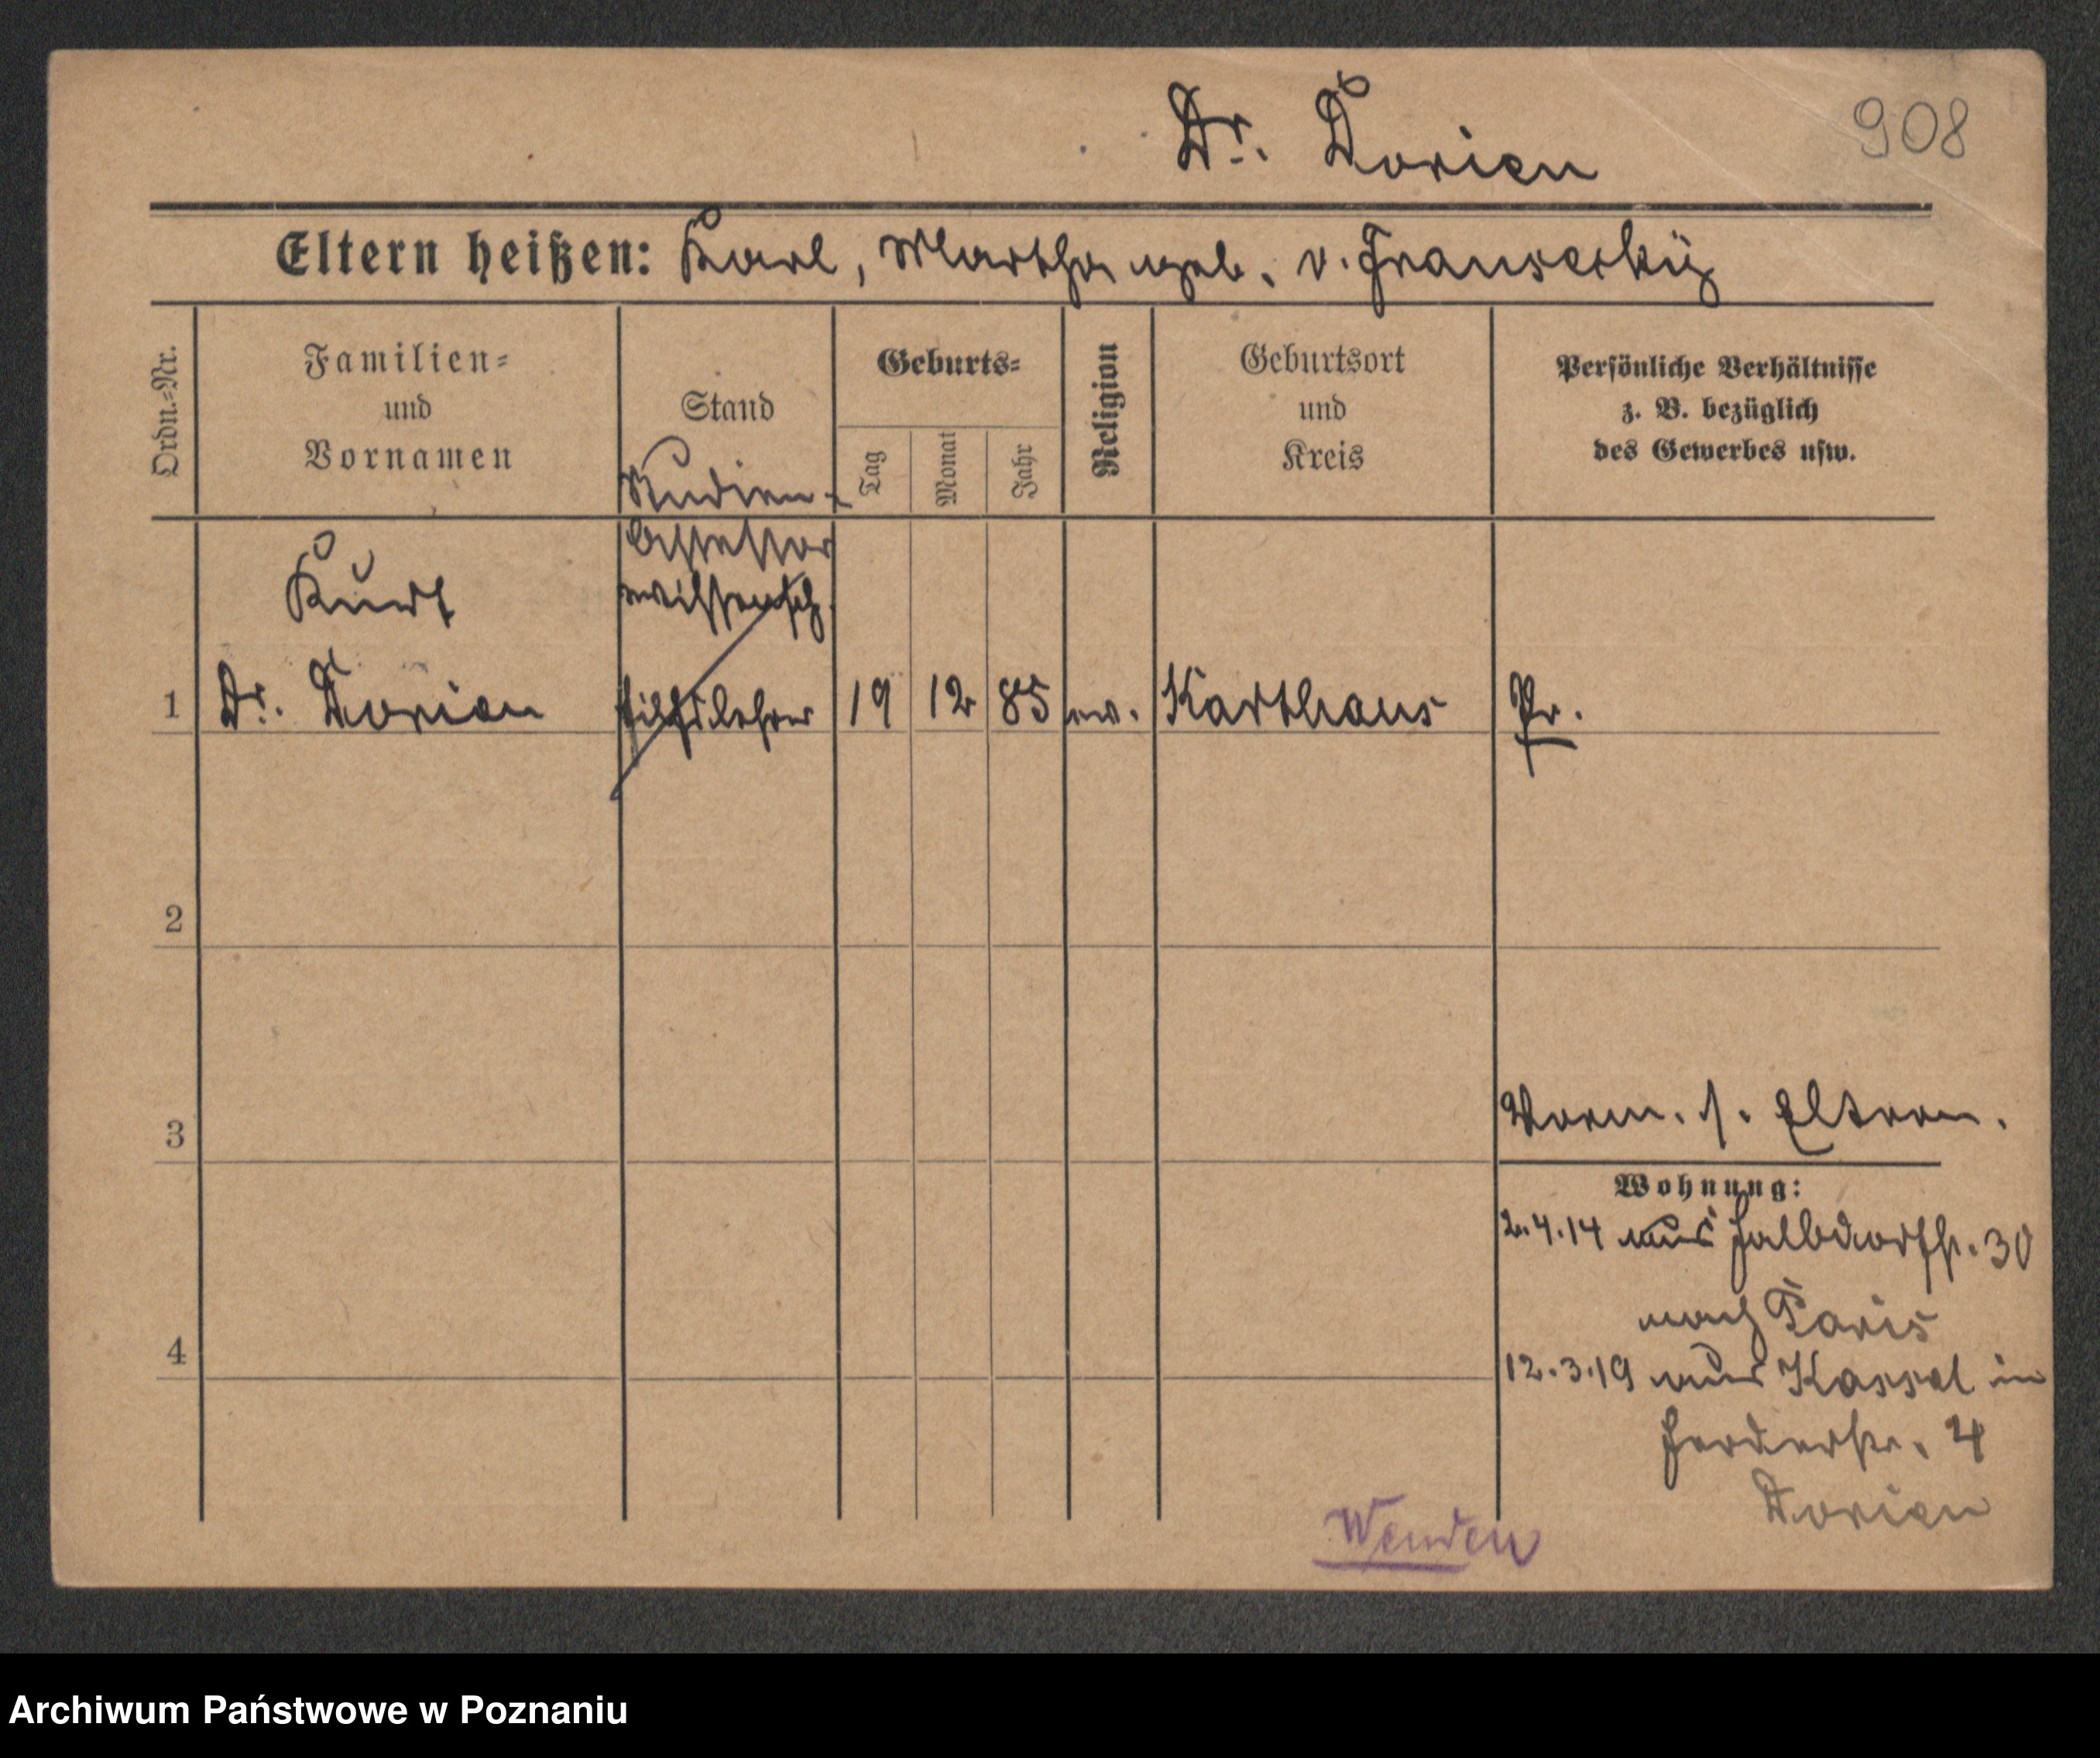 Dr. Dorien
908
Eltern heißen: Karl, Martha geb. v. Fransecky
Ordn.-Nr.
Familien-
und
Vornamen
Stand
Geburts-
Tag
Monat
Jahr
Religion
Geburtsort
und
Kreis
Persönliche Verhältnisse
z. B. bezüglich
des Gewerbes usw.
Studien-
assessor
wissensch.
Hilfslehrer
Kurt
1 Dr. Dorien 19 12 85 ev. Karthaus Pr.
2
3
Vorm. s. Eltern.
Wohnung:
2.4.14 aus Halbdorfstr. 30
nach Paris
4
12.3.19 aus Kassel in
Herderstr. 4
Dorien
Wenden
Archiwum Państwowe w Poznaniu